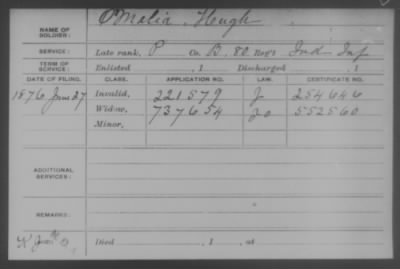 NAME OF SOLDIER: O'Melia, Hough
SERVICE: Late rank, P Co. B, 80 Reg't Ind Inf
TERM OF SERVICE: Enlisted , 1 Discharged , 1
DATE OF FILING. CLASS. APPLICATION NO. LAW. CERTIFICATE NO.
1876 June 27 Invalid, 221579 254646
Widow, 737654 552560
Minor,
ADDITIONAL SERVICES:
REMARKS:
Died , 1 , at